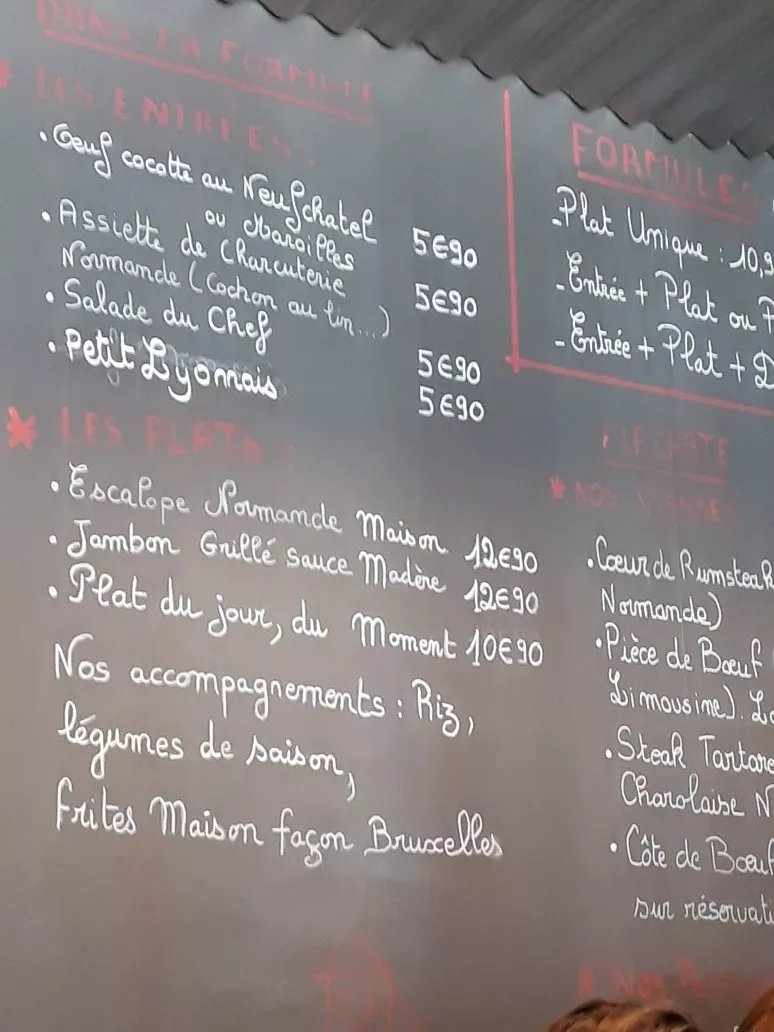 DANS LA FORMULE
* LES ENTRÉES :
• Œuf cocotte au Neufchatel
ou Maroilles 5€90
• Assiette de Charcuterie
Normande (Cochon au lin...) 5€90
• Salade du Chef 5€90
• Petit Lyonnais 5€90
* LES PLATS :
• Escalope Normande Maison 12€90
• Jambon Grillé sauce Madère 12€90
• Plat du jour, du Moment 10€90
Nos accompagnements : Riz,
légumes de saison,
frites Maison façon Bruxelles
FORMULES
- Plat Unique : 10,9
- Entrée + Plat ou
- Entrée + Plat + D
A LA CARTE
* NOS VIANDES
• Cœur de Rumsteak
Normande)
• Pièce de Bœuf
Limousine). L
• Steak Tartare
Charolaise N
• Côte de Bœuf
sur réservati
* NOS